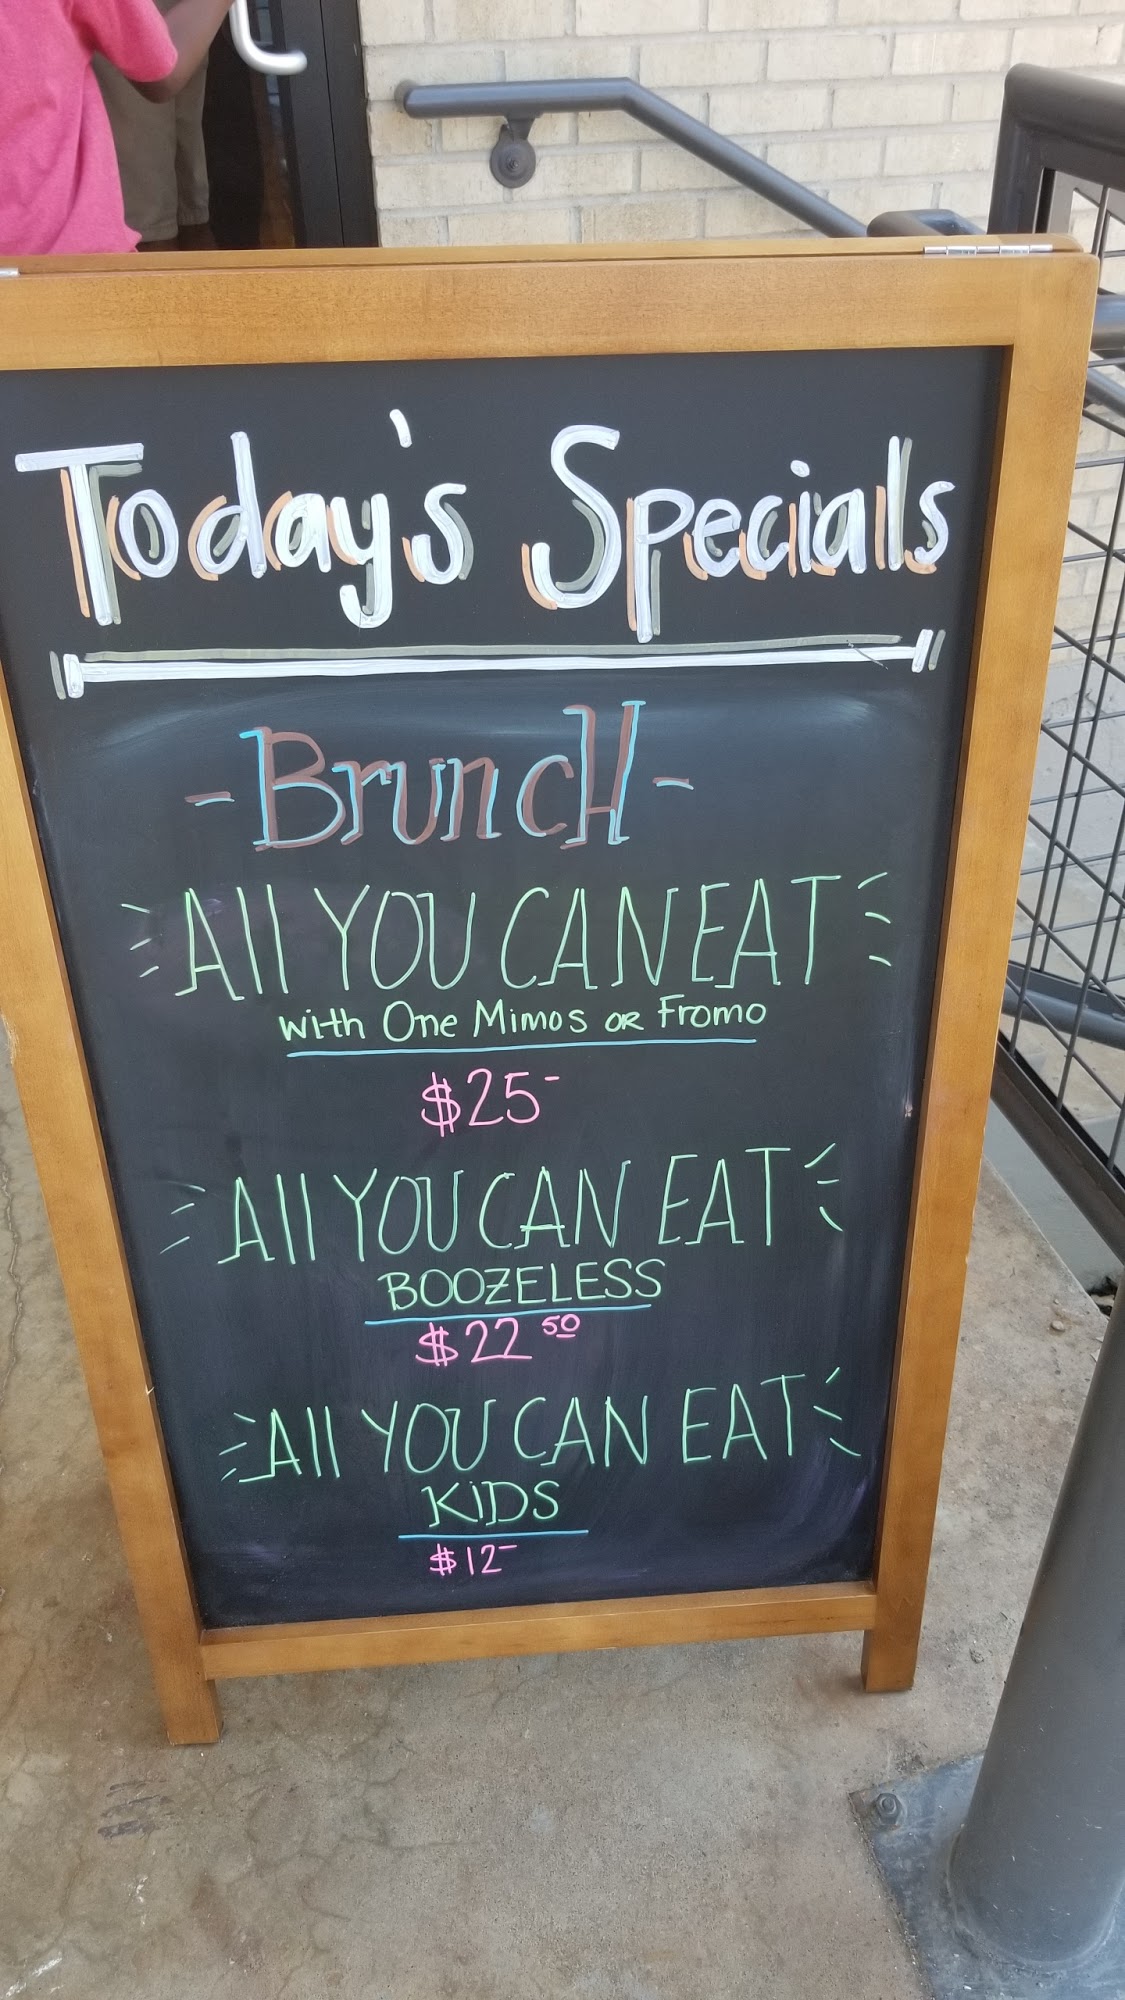 Today's Specials
- BruncH -
All YOU CAN EAT
with One Mimos OR Fromo
$25-
All YOU CAN EAT
BOOZELESS
$22 50
All YOU CAN EAT
KiDS
$12-